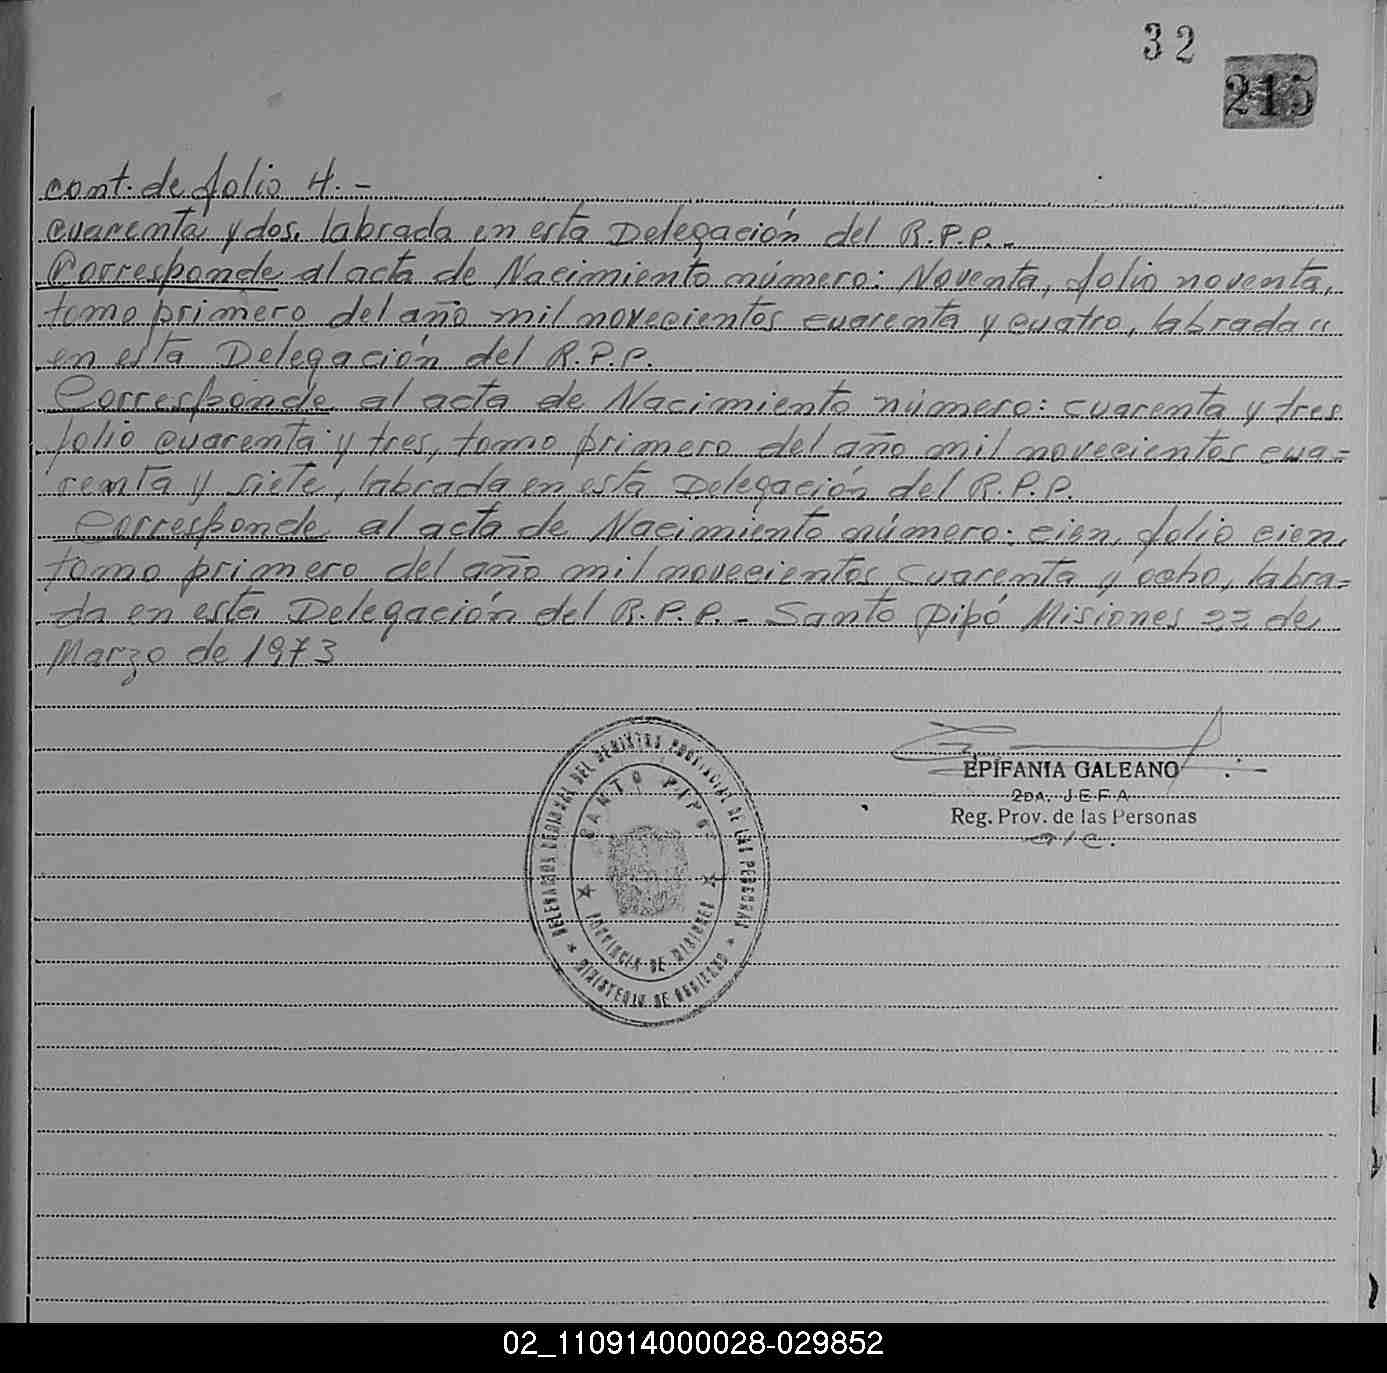 32
215
cont. de folio 4. -
cuarenta y dos, labrada en esta Delegación del R.P.P. -
Corresponde al acta de Nacimiento número: Noventa, folio noventa,
tomo primero del año mil novecientos cuarenta y cuatro, labrada
en esta Delegación del R.P.P.
Corresponde al acta de Nacimiento número: cuarenta y tres
folio cuarenta y tres, tomo primero del año mil novecientos cua=
renta y siete, labrada en esta Delegación del R.P.P.
Corresponde al acta de Nacimiento número: cien, folio cien,
tomo primero del año mil novecientos cuarenta y ocho, labra=
da en esta Delegación del R.P.P. - Santo Pipó Misiones 22 de
Marzo de 1973
DELEGACION REGIONAL DEL REGISTRO PROVINCIAL DE LAS PERSONAS
SANTO PIPO
PROVINCIA DE MISIONES
MINISTERIO DE GOBIERNO
EPIFANIA GALEANO
2DA. JEFA
Reg. Prov. de las Personas
a/c.
02_110914000028-029852